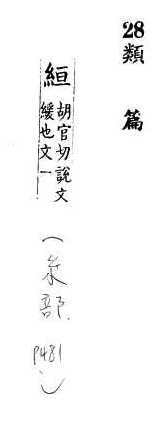 28類篇
絙
胡官切說文
緩也文一
(糸部. P481)